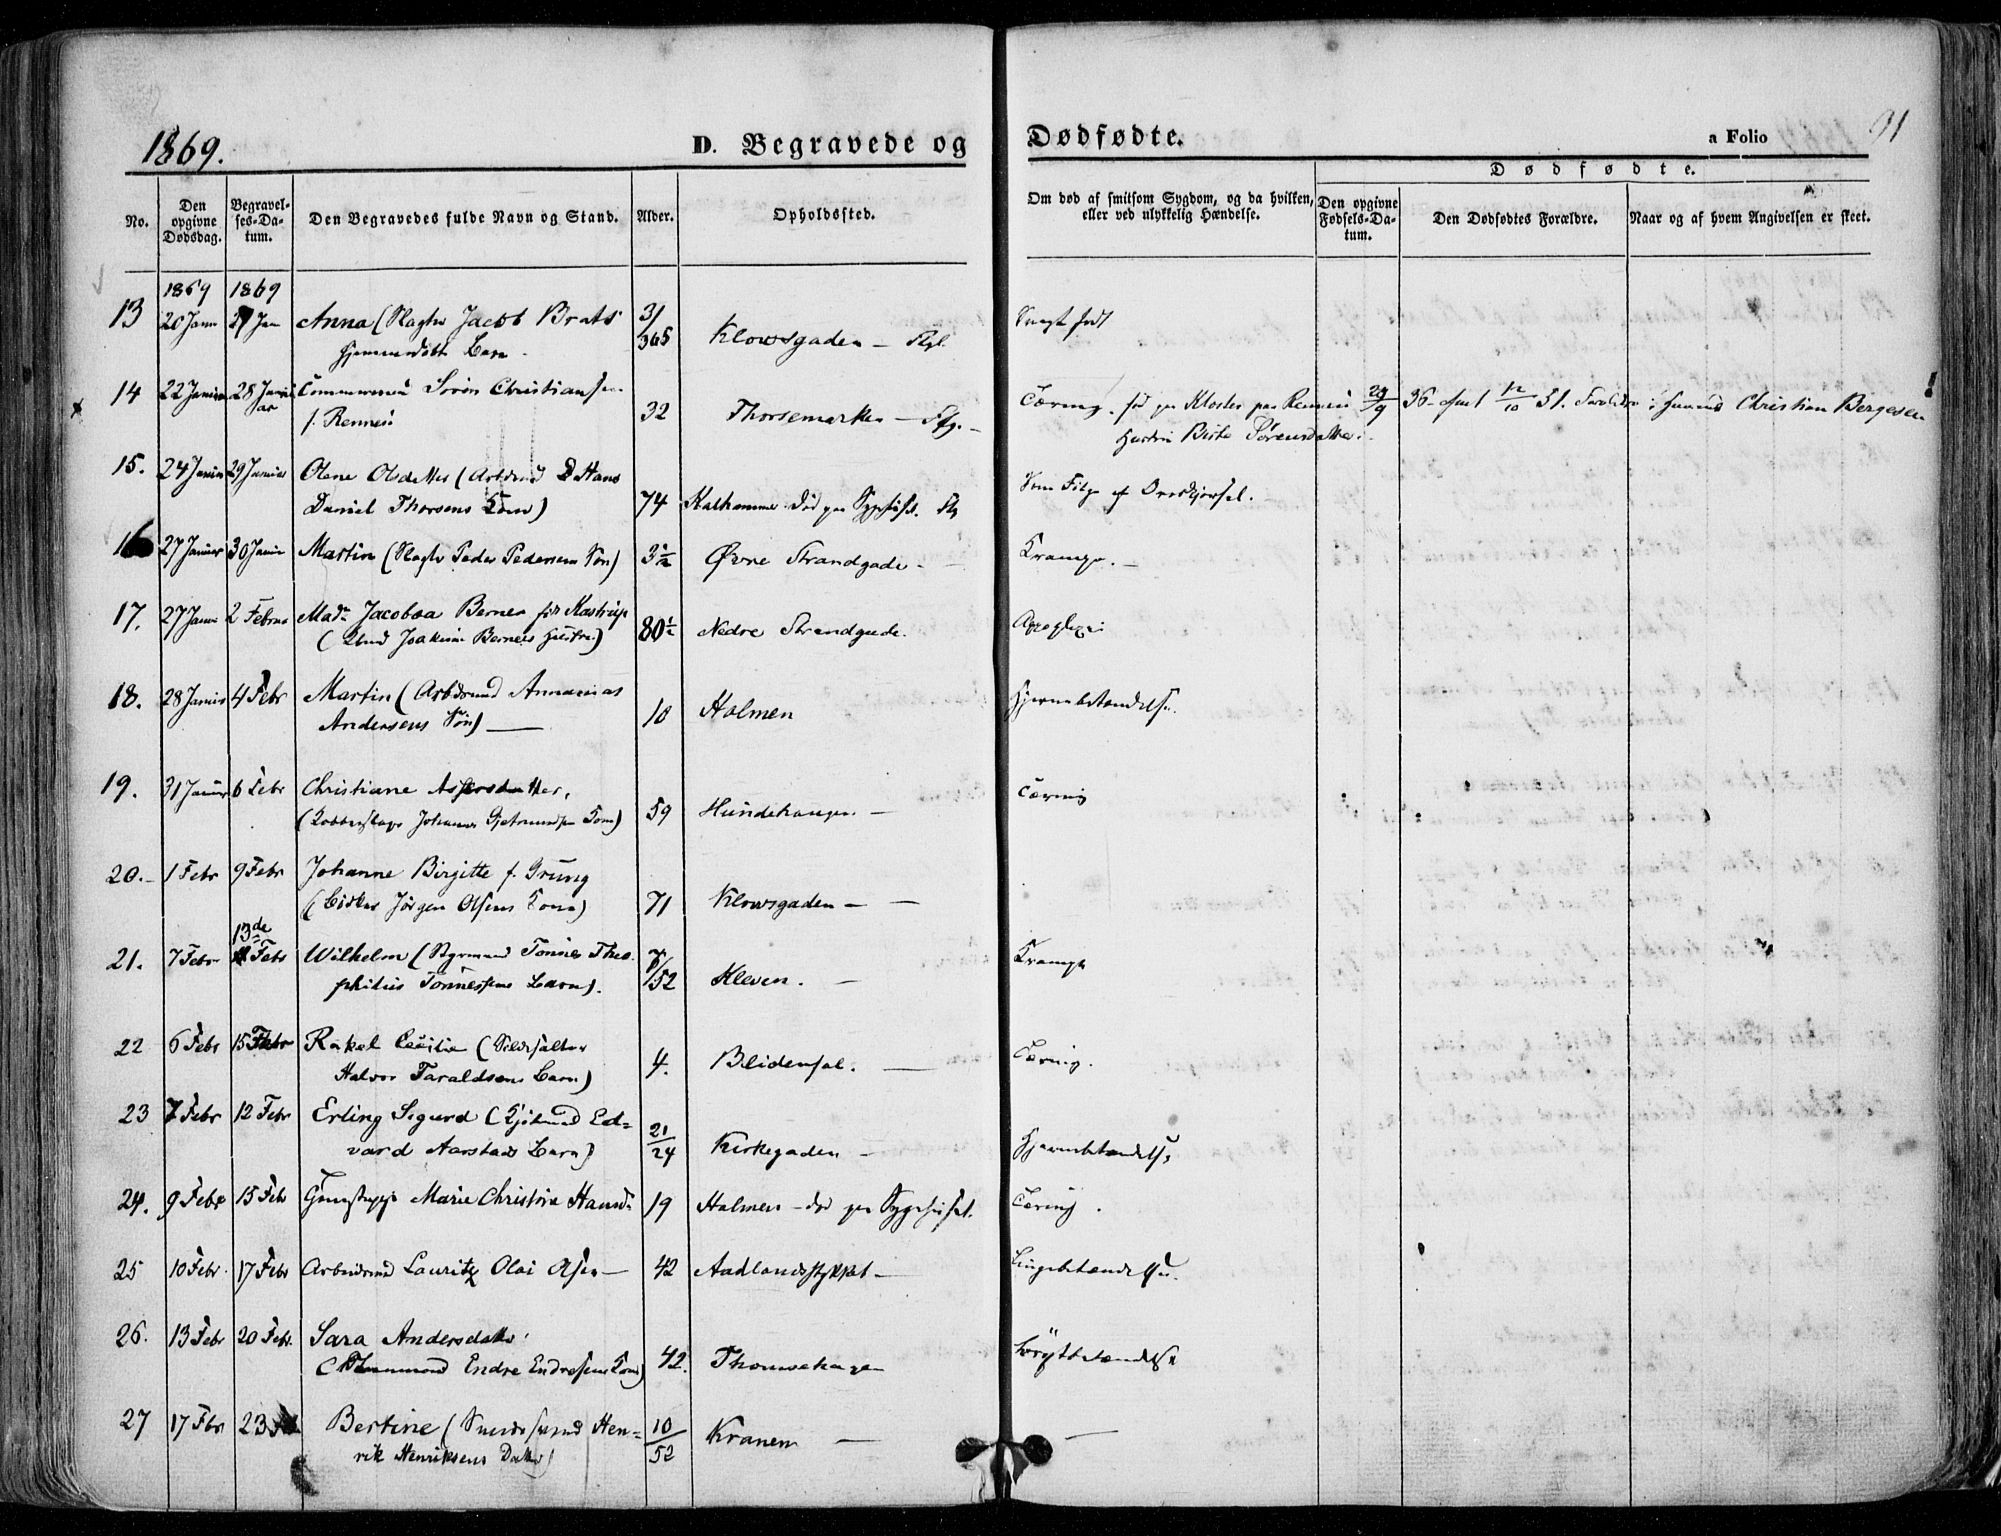 1869.
D. Begravede og Dødfødte.
a Folio 91
No.
Den opgivne Dødsdag.
Begravelses-Datum.
Den Begravedes fulde Navn og Stand.
Alder.
Opholdssted.
Om død af smitsom Sygdom, og da hvilken, eller ved ulykkelig Hændelse.
Dødfødte.
Den opgivne Fødsels-Datum.
Den Dødfødtes Forældre.
Naar og af hvem Angivelsen er skeet.
1869 1869
13 20 Janu 27 Jan Anna (Slagter Jacob Brats 31/365 Klowsgaden — Svagt født
Barn
14 22 Januar 28 Januar Sørin Christiansen 32 Thorsemarken Tæring. født paa Kloster paa Rennesø 29/9 36 12/10 51. Christian Bergesen
f. Rennesø Hustru Birte Sørensdatter
15. 24 Januar 29 Januar Olene Olsdatter (Arbdsmd Hans
Daniel Thorsens Kone) 74 Kalhammer død paa Sygehuset. Som Følge af
16 27 Januar 30 Janu Martin (Slagter Peder Pedersens Søn) 3½ Øvre Strandgade Krampe.
17. 27 Janu 2 Februar Mad. Jacobæa Berner født Kastrup
(Joakim Berners Hustru) 80½ Nedre Strandgade. Apoplexi
18. 28 Januar 4 Febr Martin (Arbdsmd Annanias
Andersens Søn) 10 Holmen Hjernebetændelse.
19. 31 Januar 6 Febr Christiane Aslersdatter,
(Kobberslager Johannes Kone) 59 Hundehougen Tæring
20. 1 Febr 9 Febr Johanne Birgitte f. Grung
(Jørgen Olsens Kone) 71 Klowsgaden —
13de
21. 7 Febr Febr Wilhelm (Styrmand Tønnes Theo
philius Tønnessens Barn). 7/52 Kleven. — Krampe
22 6 Febr 15 Febr Rakel Cecilie (Sildesalter
Halvor Taraldsens Barn) 4. Bleidensol. — Tæring.
23 7 Febr 12 Febr Erling Sigurd (Kjøbmd Ed=
vard Aarstads Barn) 21/24 Kirkegaden — Hjernebetændelse
24. 9 Febr 15 Febr Marie Christine Hansd. 19 Holmen — død paa Sygehuset. Tæring.
25 10 Febr. 17 Febr Arbeidsmd Lauritz Olai Olsen — 42 Aadlandsstykket — Lungebetændelse.
26. 13 Febr 20 Feb. Sara Andersdatter
Endre Endresens Kone) 42. Brystbetændelse
27 17 Fbr 23 Bertine (Hen=
rik Henriksens Datter) 10/52 Kranen — —